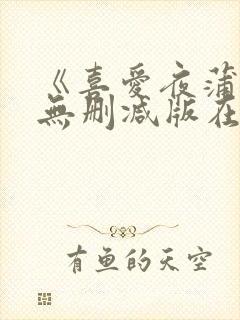 《喜愛夜蒲
無刪减版在
有鱼的天空